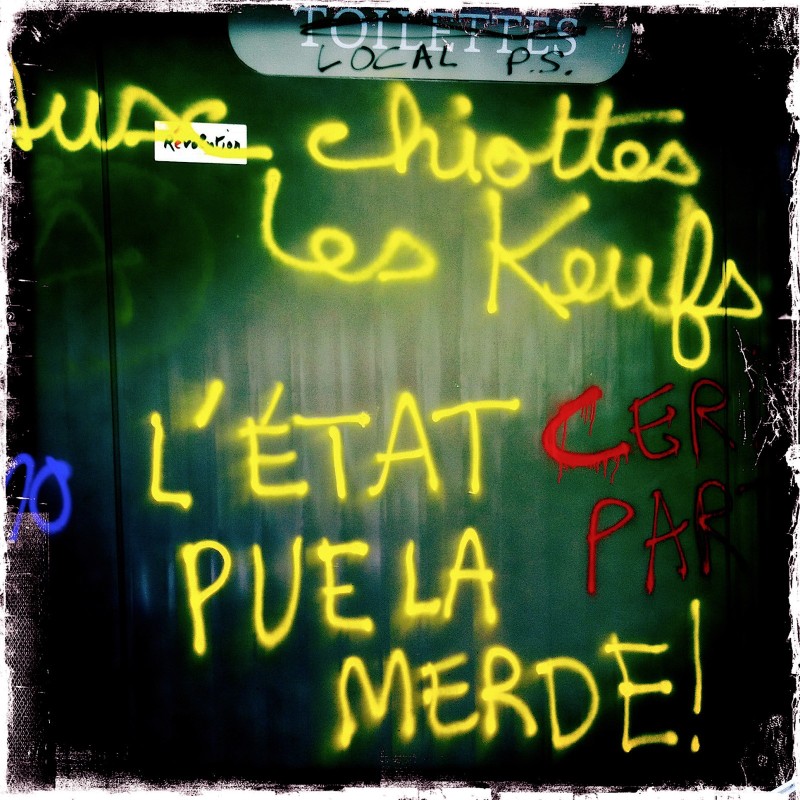 TOILETTES
LOCAL P.S.
Aux chiottes
Révolution
les Keufs
L'ÉTAT
PUE LA
MERDE!
CER
PAR